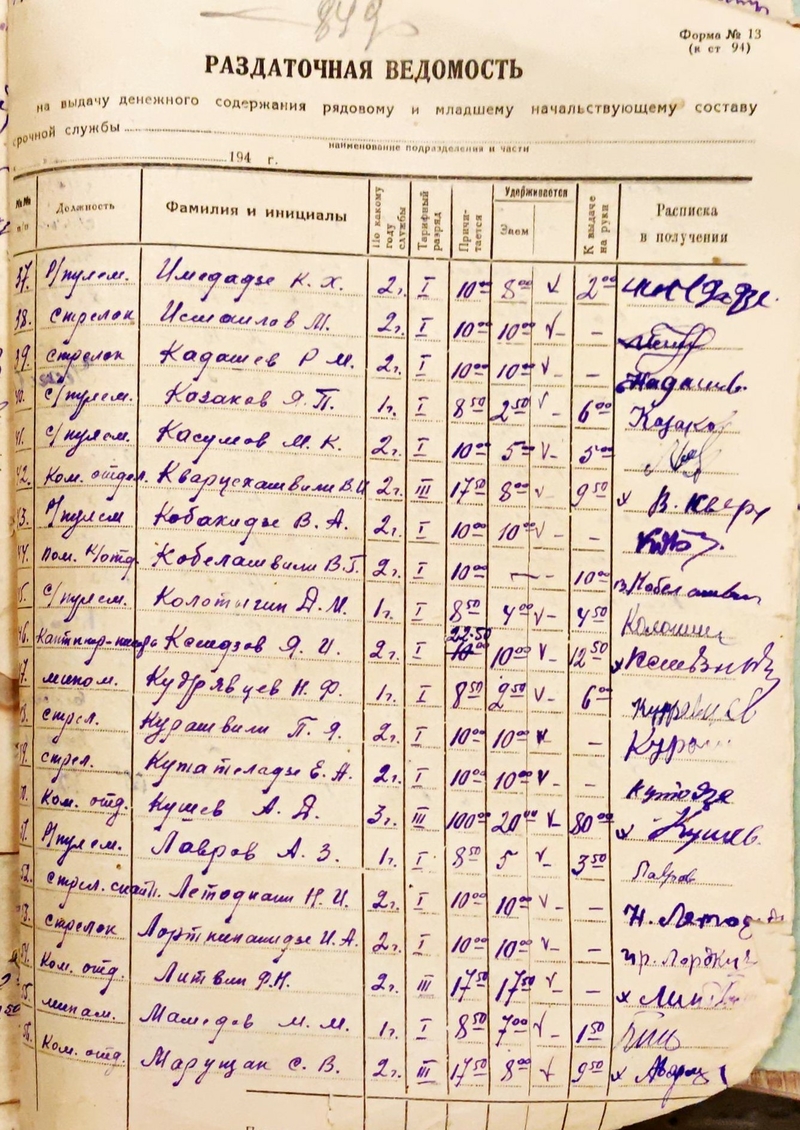 849
Форма № 13
(к ст 94)
РАЗДАТОЧНАЯ ВЕДОМОСТЬ
на выдачу денежного содержания рядовому и младшему начальствующему составу
срочной службы
наименование подразделения и части
194 г.
№№ п/п Должность Фамилия и инициалы По какому году службы Тарифный разряд Причитается Удерживается Заем К выдаче на руки Расписка в получении
37. Р/пулем. Имедадзе К. Х. 2г. I 10 00 8 00 V 2 00
38. стрелок Исмаилов М. 2г. I 10 00 10 00 V –
39. стрелок Кадашев Р. М. 2г. I 10 00 10 00 V – Кадашев
40. с/пулем. Казаков Я. П. 1г. I 8 50 2 50 V 6 00 Казаков
41. с/пулем. Касумов М. К. 2г. I 10 00 5 00 V 5 00
42. Ком. отдел. Кварцхашвили В.И 2г. III 17 50 8 00 V 9 50 х В. Квар
43. Р/пулем Кобакидзе В. А. 2г. I 10 00 10 00 V –
44. пом. к/отд. Кобелашвили В.Г. 2г. I 10 00 – 10 00
45. с/пулем. Колотыгин Д. И. 1г. I 8 50 4 00 V 4 50
46. Ксидзов Я. И. 2г. I 22-50 10 00 10 00 V 12 50
47. мином. Кудрявцев Н. Ф. 1г. I 8 50 2 50 V 6 00 Кудрявцев
48. стрел. Курашвили П. Я. 2г. I 10 00 10 00 V –
49. стрел. Кутателадзе Е. А. 2г. I 10 00 10 00 V –
50. Ком. отд. Кушев А. Д. 3г. III 100 00 20 00 V 80 00 х Кушев.
51. Р/пулем. Лавров А. З. 1г. I 8 50 5 V 3 50 Лавров
52. Летодиани Н. И. 2г. I 10 00 10 00 V –
53. стрелок Лорткипанидзе И. А. 2г. I 10 00 10 00 V –
54. Ком. отд. Литвин Ф. Н. 2г. III 17 50 17 50 V – х
55. мином. Мамедов М. М. 1г. I 8 50 7 00 V 1 50
56. Ком. отд. Марущак С. В. 2г. III 17 50 8 00 V 9 50 х